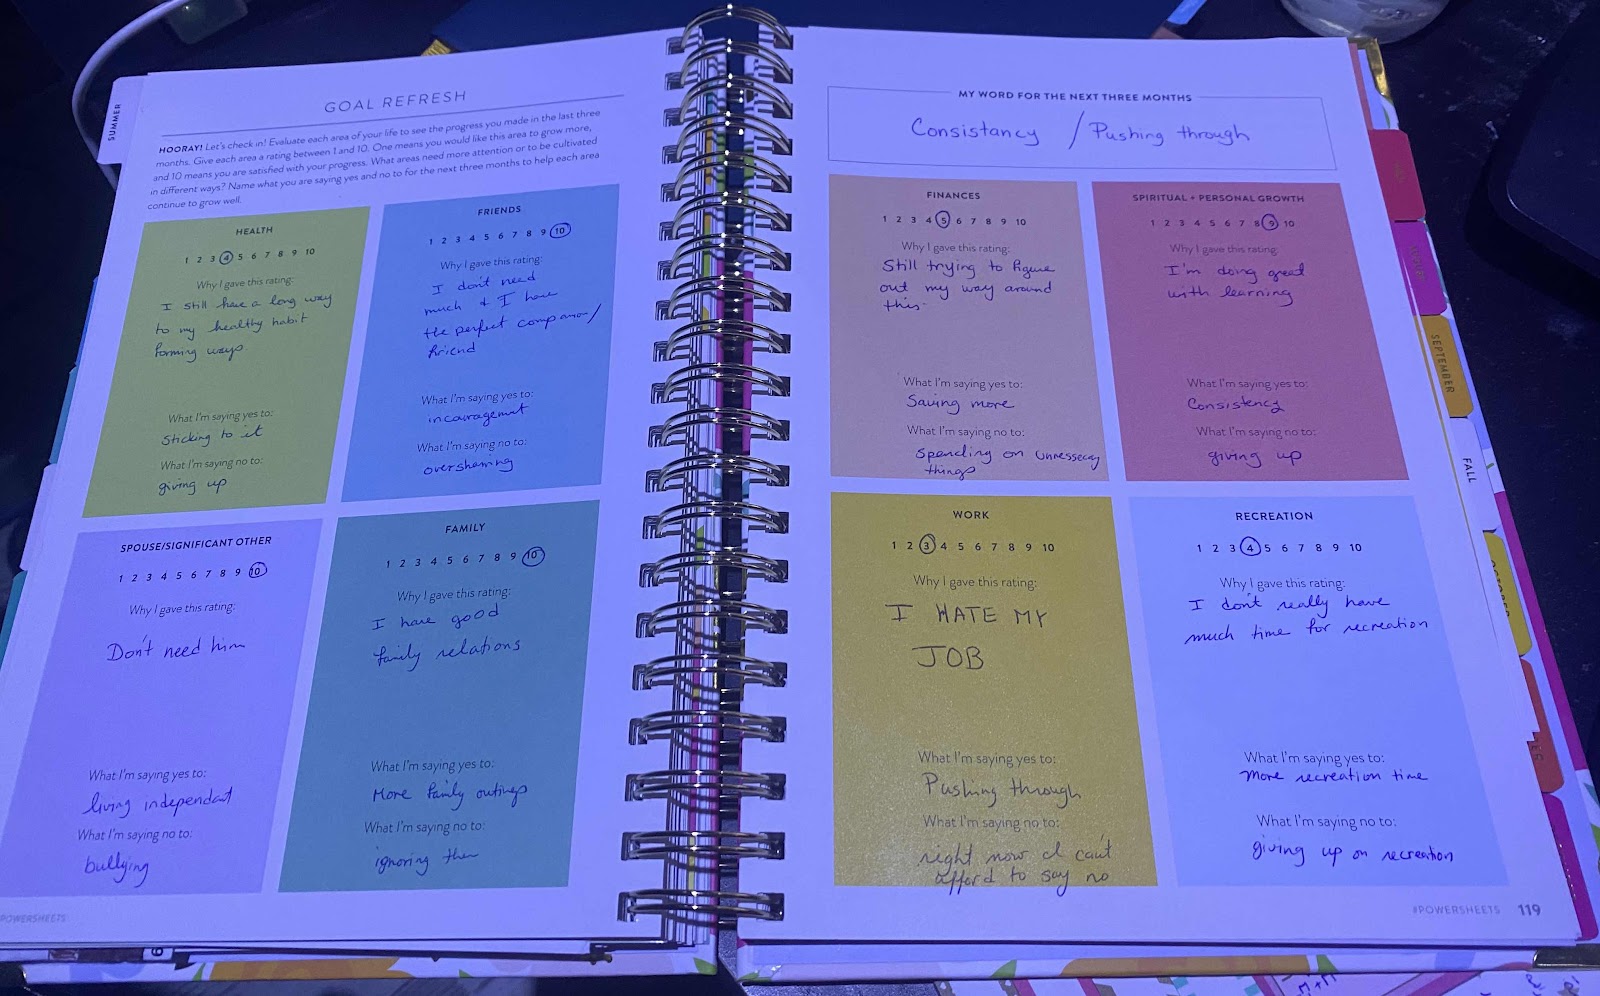 SUMMER
GOAL REFRESH
HOORAY! Let's check in! Evaluate each area of your life to see the progress you made in the last three
months. Give each area a rating between 1 and 10. One means you would like this area to grow more,
and 10 means you are satisfied with your progress. What areas need more attention or to be cultivated
in different ways? Name what you are saying yes and no to for the next three months to help each area
continue to grow well.
HEALTH
1 2 3 4 5 6 7 8 9 10
Why I gave this rating:
I still have a long way
to my healthy habit
forming ways.
What I'm saying yes to:
sticking to it
What I'm saying no to:
giving up
FRIENDS
1 2 3 4 5 6 7 8 9 10
Why I gave this rating:
I don't need
much & I have
the perfect companion/
friend
What I'm saying yes to:
incouragement
What I'm saying no to:
oversharing
SPOUSE/SIGNIFICANT OTHER
1 2 3 4 5 6 7 8 9 10
Why I gave this rating:
Don't need him
What I'm saying yes to:
living independant
What I'm saying no to:
bullying
FAMILY
1 2 3 4 5 6 7 8 9 10
Why I gave this rating:
I have good
family relations
What I'm saying yes to:
More family outings
What I'm saying no to:
ignoring them
POWERSHEETS
MY WORD FOR THE NEXT THREE MONTHS
Consistancy / Pushing through
FINANCES
1 2 3 4 5 6 7 8 9 10
Why I gave this rating:
Still trying to figure
out my way around
this.
What I'm saying yes to:
Saving more
What I'm saying no to:
spending on unnessecay
things
SPIRITUAL + PERSONAL GROWTH
1 2 3 4 5 6 7 8 9 10
Why I gave this rating:
I'm doing great
with learning
What I'm saying yes to:
Consistency
What I'm saying no to:
giving up
WORK
1 2 3 4 5 6 7 8 9 10
Why I gave this rating:
I HATE MY
JOB
What I'm saying yes to:
Pushing through
What I'm saying no to:
right now I can't
afford to say no
RECREATION
1 2 3 4 5 6 7 8 9 10
Why I gave this rating:
I don't really have
much time for recreation
What I'm saying yes to:
More recreation time
What I'm saying no to:
giving up on recreation
#POWERSHEETS 119
SEPTEMBER
FALL
OCTOBER